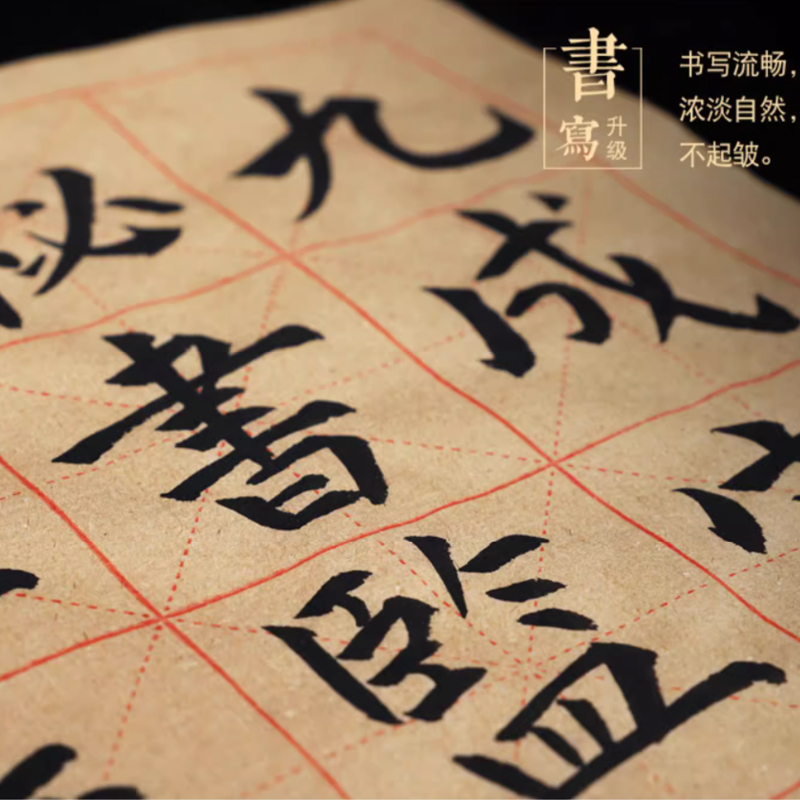 書寫
升级
书写流畅，
浓淡自然，
不起皱。
九成
秘書監